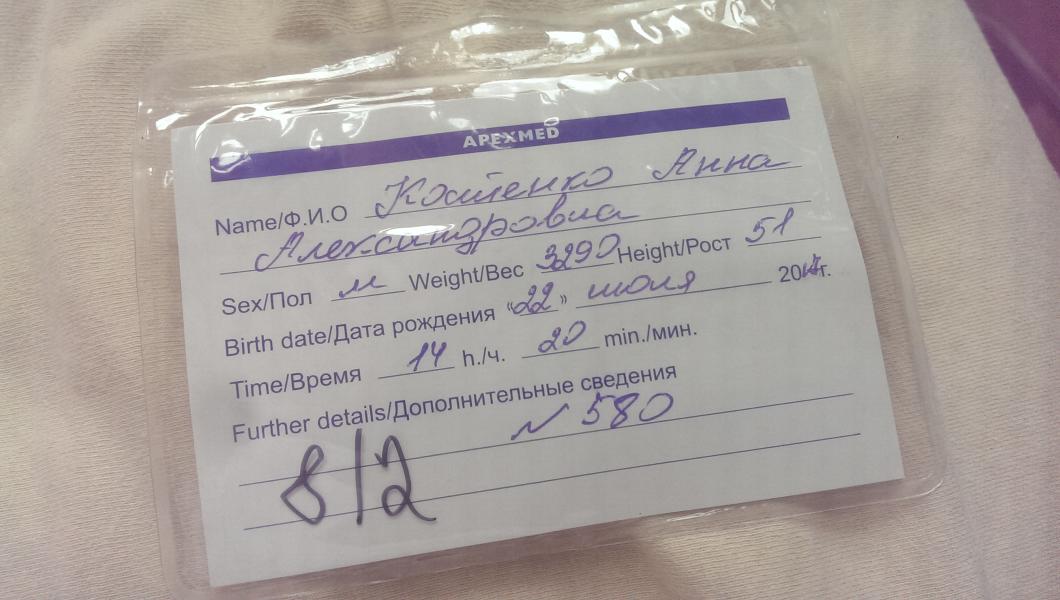 APEXMED
Name/Ф.И.О Костенко Анна
Александровна
Sex/Пол м Weight/Вес 3290 Height/Рост 51
Birth date/Дата рождения «22» июля 2014г.
Time/Время 14 h./ч. 20 min./мин.
Further details/Дополнительные сведения
N 580
8/2